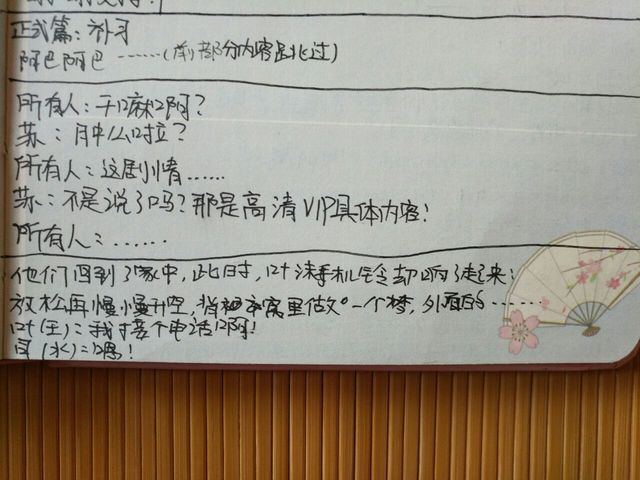 正式篇：补习
阿巴阿巴……（前部分内容跳过）
所有人：干嘛啊？
苏：肿么啦？
所有人：这剧情……
苏：不是说了吗？那是高清VIP具体内容！
所有人：……
他们回到了家中，此时，叶涛手机铃却响了起来：
放松再慢慢升空，背袓本窝里做一个梦，外面的……
叶（王）：我接个电话啊！
（水）：嗯！